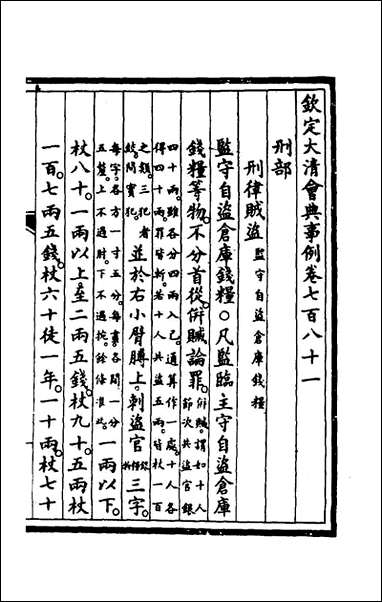 欽定大清會典事例卷七百八十一
刑部
刑律賊盜監守自盜倉庫錢糧
監守自盜倉庫錢糧○凡監臨主守自盜倉庫
錢糧等物不分首從併贓論罪。併贓謂如十人節次共盜官銀
四十兩雖各分四兩入己通算作一處十人各得四十兩罪皆斬若十人共盜五兩皆杖一百
之類三犯者絞問實犯並於右小臂膊上刺盜官銀糧物三字。
每字各方一寸五分每畫各闊一分五釐上不過肘下不過腕餘條准此一兩以下。
杖八十。一兩以上至二兩五錢杖九十。五兩杖
一百。七兩五錢杖六十徒一年。一十兩杖七十